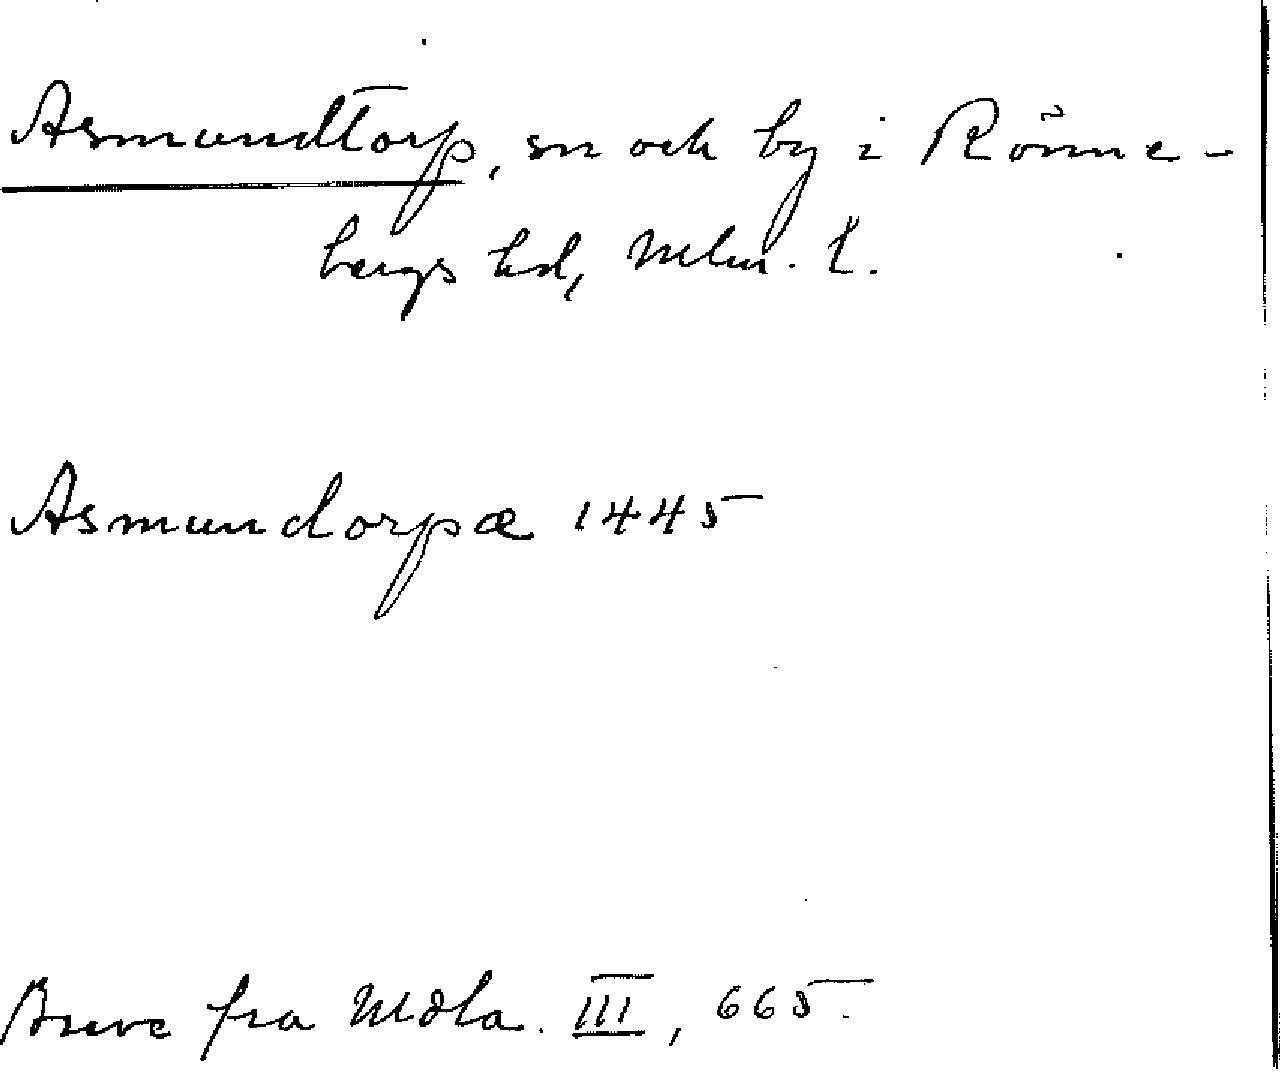 Asmundtorp, sn och by i Rönne-
bergs hd, Mlm. l.
Asmundorpæ 1445
Breve fra Mdla. III, 665.